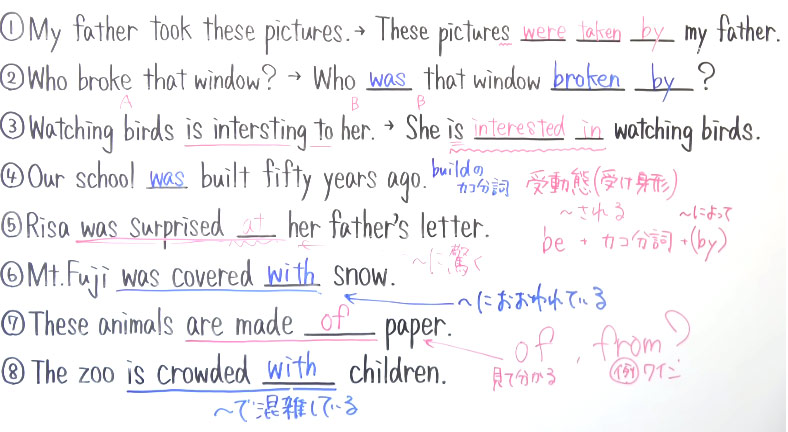 ①My father took these pictures.→ These pictures were taken by my father.
②Who broke that window? → Who was that window broken by?
A B B
③Watching birds is intersting to her. → She is interested in watching birds.
④Our school was built fifty years ago. buildの
カコ分詞
受動態(受け身形)
～される ～によって
be + カコ分詞+(by)
⑤Risa was surprised at her father's letter.
～に驚く
⑥Mt.Fuji was covered with snow.
～におおわれている
⑦These animals are made of paper.
of, from
見て分かる 例ワイン
⑧The zoo is crowded with children.
～で混雑している